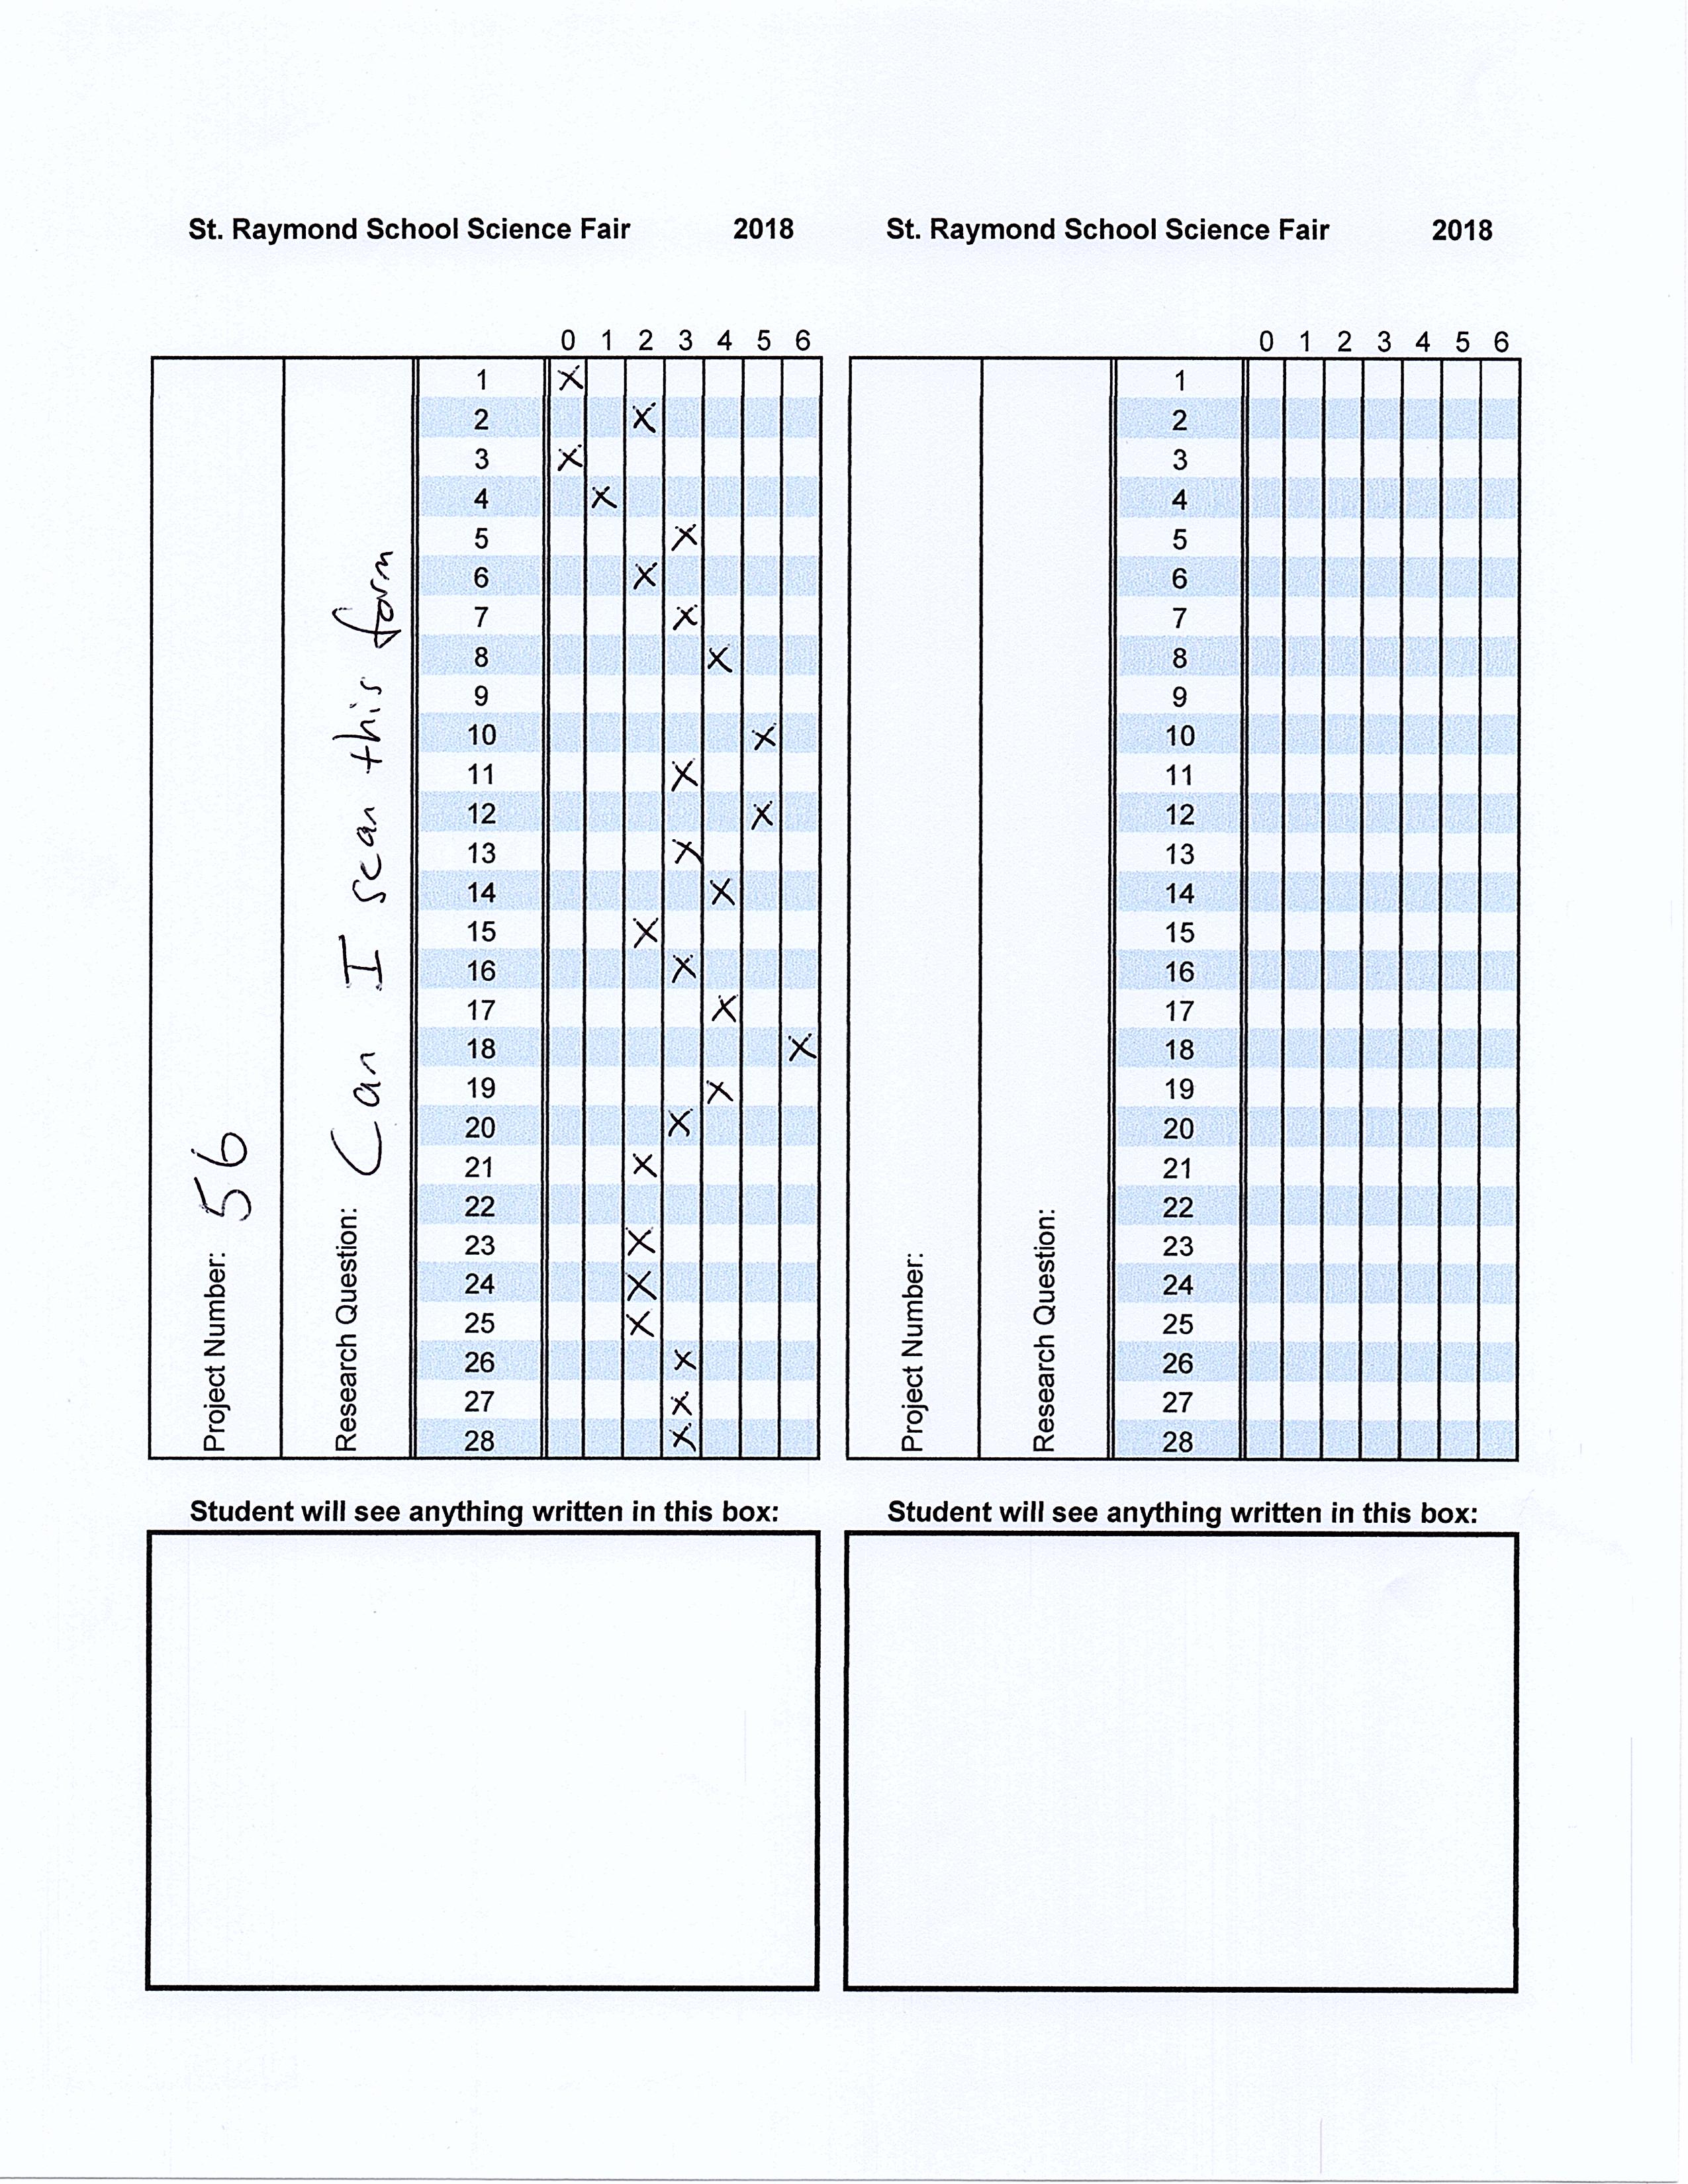 St. Raymond School Science Fair 2018
0 1 2 3 4 5 6
Project Number: 56
Research Question: Can I scan this form
1 X
2 X
3 X
4 X
5 X
6 X
7 X
8 X
9
10 X
11 X
12 X
13 X
14 X
15 X
16 X
17 X
18 X
19 X
20 X
21 X
22
23 X
24 X
25 X
26 X
27 X
28 X
Student will see anything written in this box:
St. Raymond School Science Fair 2018
0 1 2 3 4 5 6
Project Number:
Research Question:
1
2
3
4
5
6
7
8
9
10
11
12
13
14
15
16
17
18
19
20
21
22
23
24
25
26
27
28
Student will see anything written in this box: